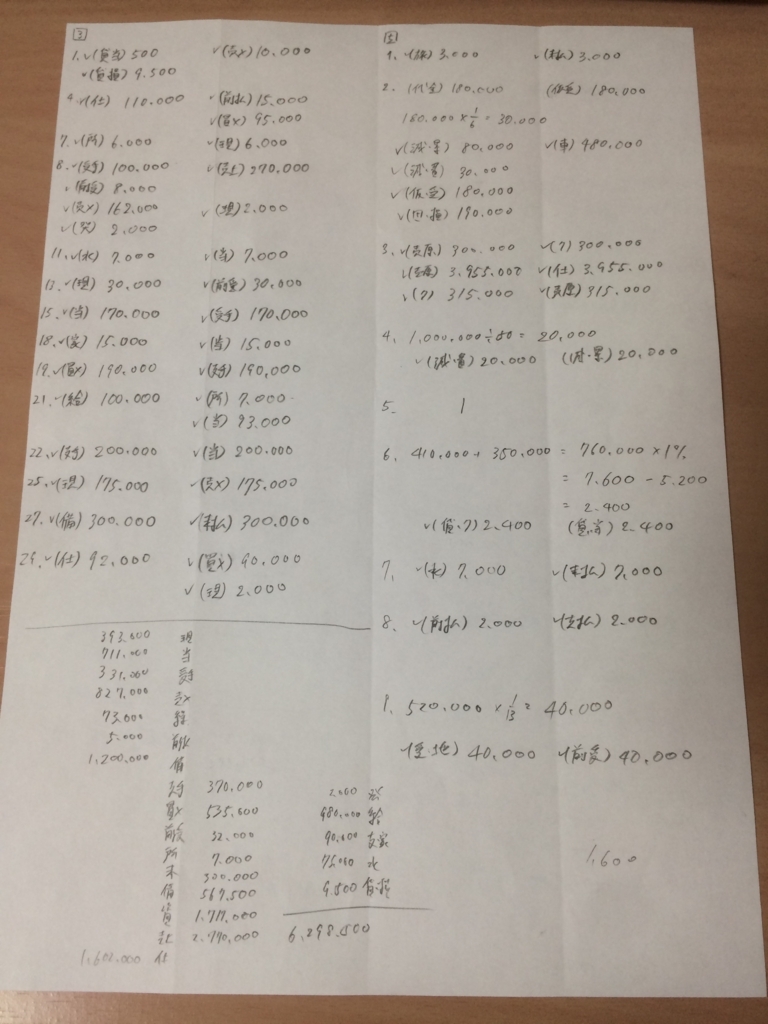 3
1. ✓(貸当) 500 ✓(売×) 10.000
✓(貸損) 9.500
4. ✓(仕) 110.000 ✓(前払) 15.000
✓(買×) 95.000
7. ✓(所) 6.000 ✓(現) 6.000
8. ✓(受手) 100.000 ✓(売上) 270.000
✓(前受) 8.000
✓(売×) 162.000 ✓(現) 2.000
✓(発) 2.000
11. ✓(水) 7.000 ✓(当) 7.000
13. ✓(現) 30.000 ✓(前受) 30.000
15. ✓(当) 170.000 ✓(受手) 170.000
18. ✓(家) 15.000 ✓(当) 15.000
19. ✓(買×) 190.000 ✓(支手) 190.000
21. ✓(給) 100.000 ✓(所) 7.000
✓(当) 93.000
22. ✓(支手) 200.000 ✓(当) 200.000
25. ✓(現) 175.000 ✓(売×) 175.000
27. ✓(備) 300.000 ✓(未払) 300.000
29. ✓(仕) 92.000 ✓(買×) 90.000
✓(現) 2.000
393.000 現
711.000 当
331.000 受手
827.000 売×
73.000 繰
5.000 前払
1.200.000 備
支手 370.000
買× 535.600
前受 32.000
所 7.000
未 300.000
備 567.500
資 1.717.000
売上 2.770.000
1.602.000 仕
2.000 発
980.000 給
90.000 支家
76.000 水
9.500 貸損
6.298.500
5
1. ✓(旅) 3.000 ✓(未払) 3.000
2. (代金) 180.000 (仮受) 180.000
180.000 × 1/6 = 30.000
✓(減・累) 80.000 ✓(車) 480.000
✓(減・費) 30.000
✓(仮受) 180.000
✓(固・損) 190.000
3. ✓(売原) 300.000 ✓(ク) 300.000
✓(売原) 3.955.000 ✓(仕) 3.955.000
✓(ク) 315.000 ✓(売原) 315.000
4. 1.000.000 ÷ 50 = 20.000
✓(減・費) 20.000 (減・累) 20.000
5.
6. 410.000 + 350.000 = 760.000 × 1%
= 7.600 - 5.200
= 2.400
✓(貸・ク) 2.400 (貸・当) 2.400
7. ✓(水) 7.000 ✓(未払) 7.000
8. ✓(前払) 2.000 ✓(支払) 2.000
9. 520.000 × 1/13 = 40.000
✓(受・地) 40.000 ✓(前受) 40.000
1.600